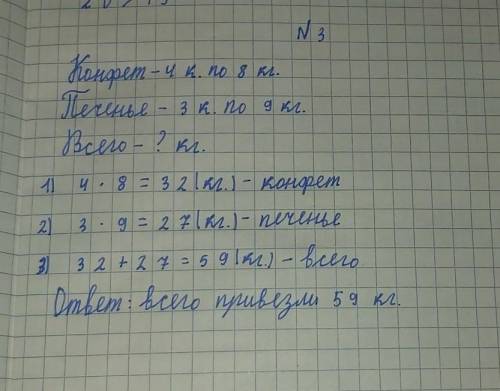 N 3
Конфет - 4 к. по 8 кг.
Печенье - 3 к. по 9 кг.
Всего - ? кг.
1) 4 · 8 = 32 (кг.) - конфет
2) 3 · 9 = 27 (кг.) - печенье
3) 32 + 27 = 59 (кг.) - всего
Ответ: всего привезли 59 кг.